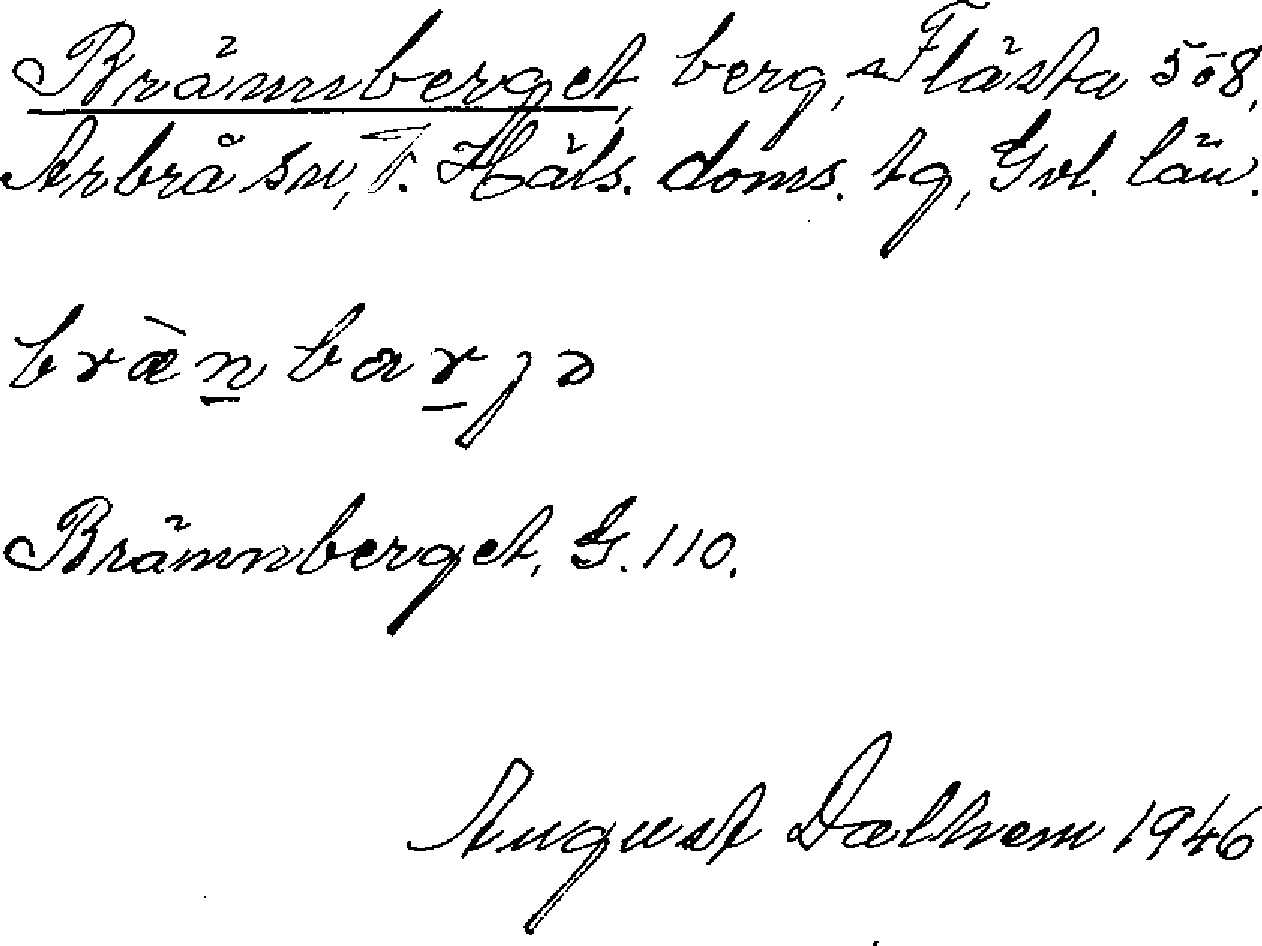 Brännberget, berg, Flästa 508,
Arbrå sn, V. Häls. doms. tg, Gvl. län.
bræ̀n̲bar̲jə
Brännberget, G. 110.
August Dalhem 1946